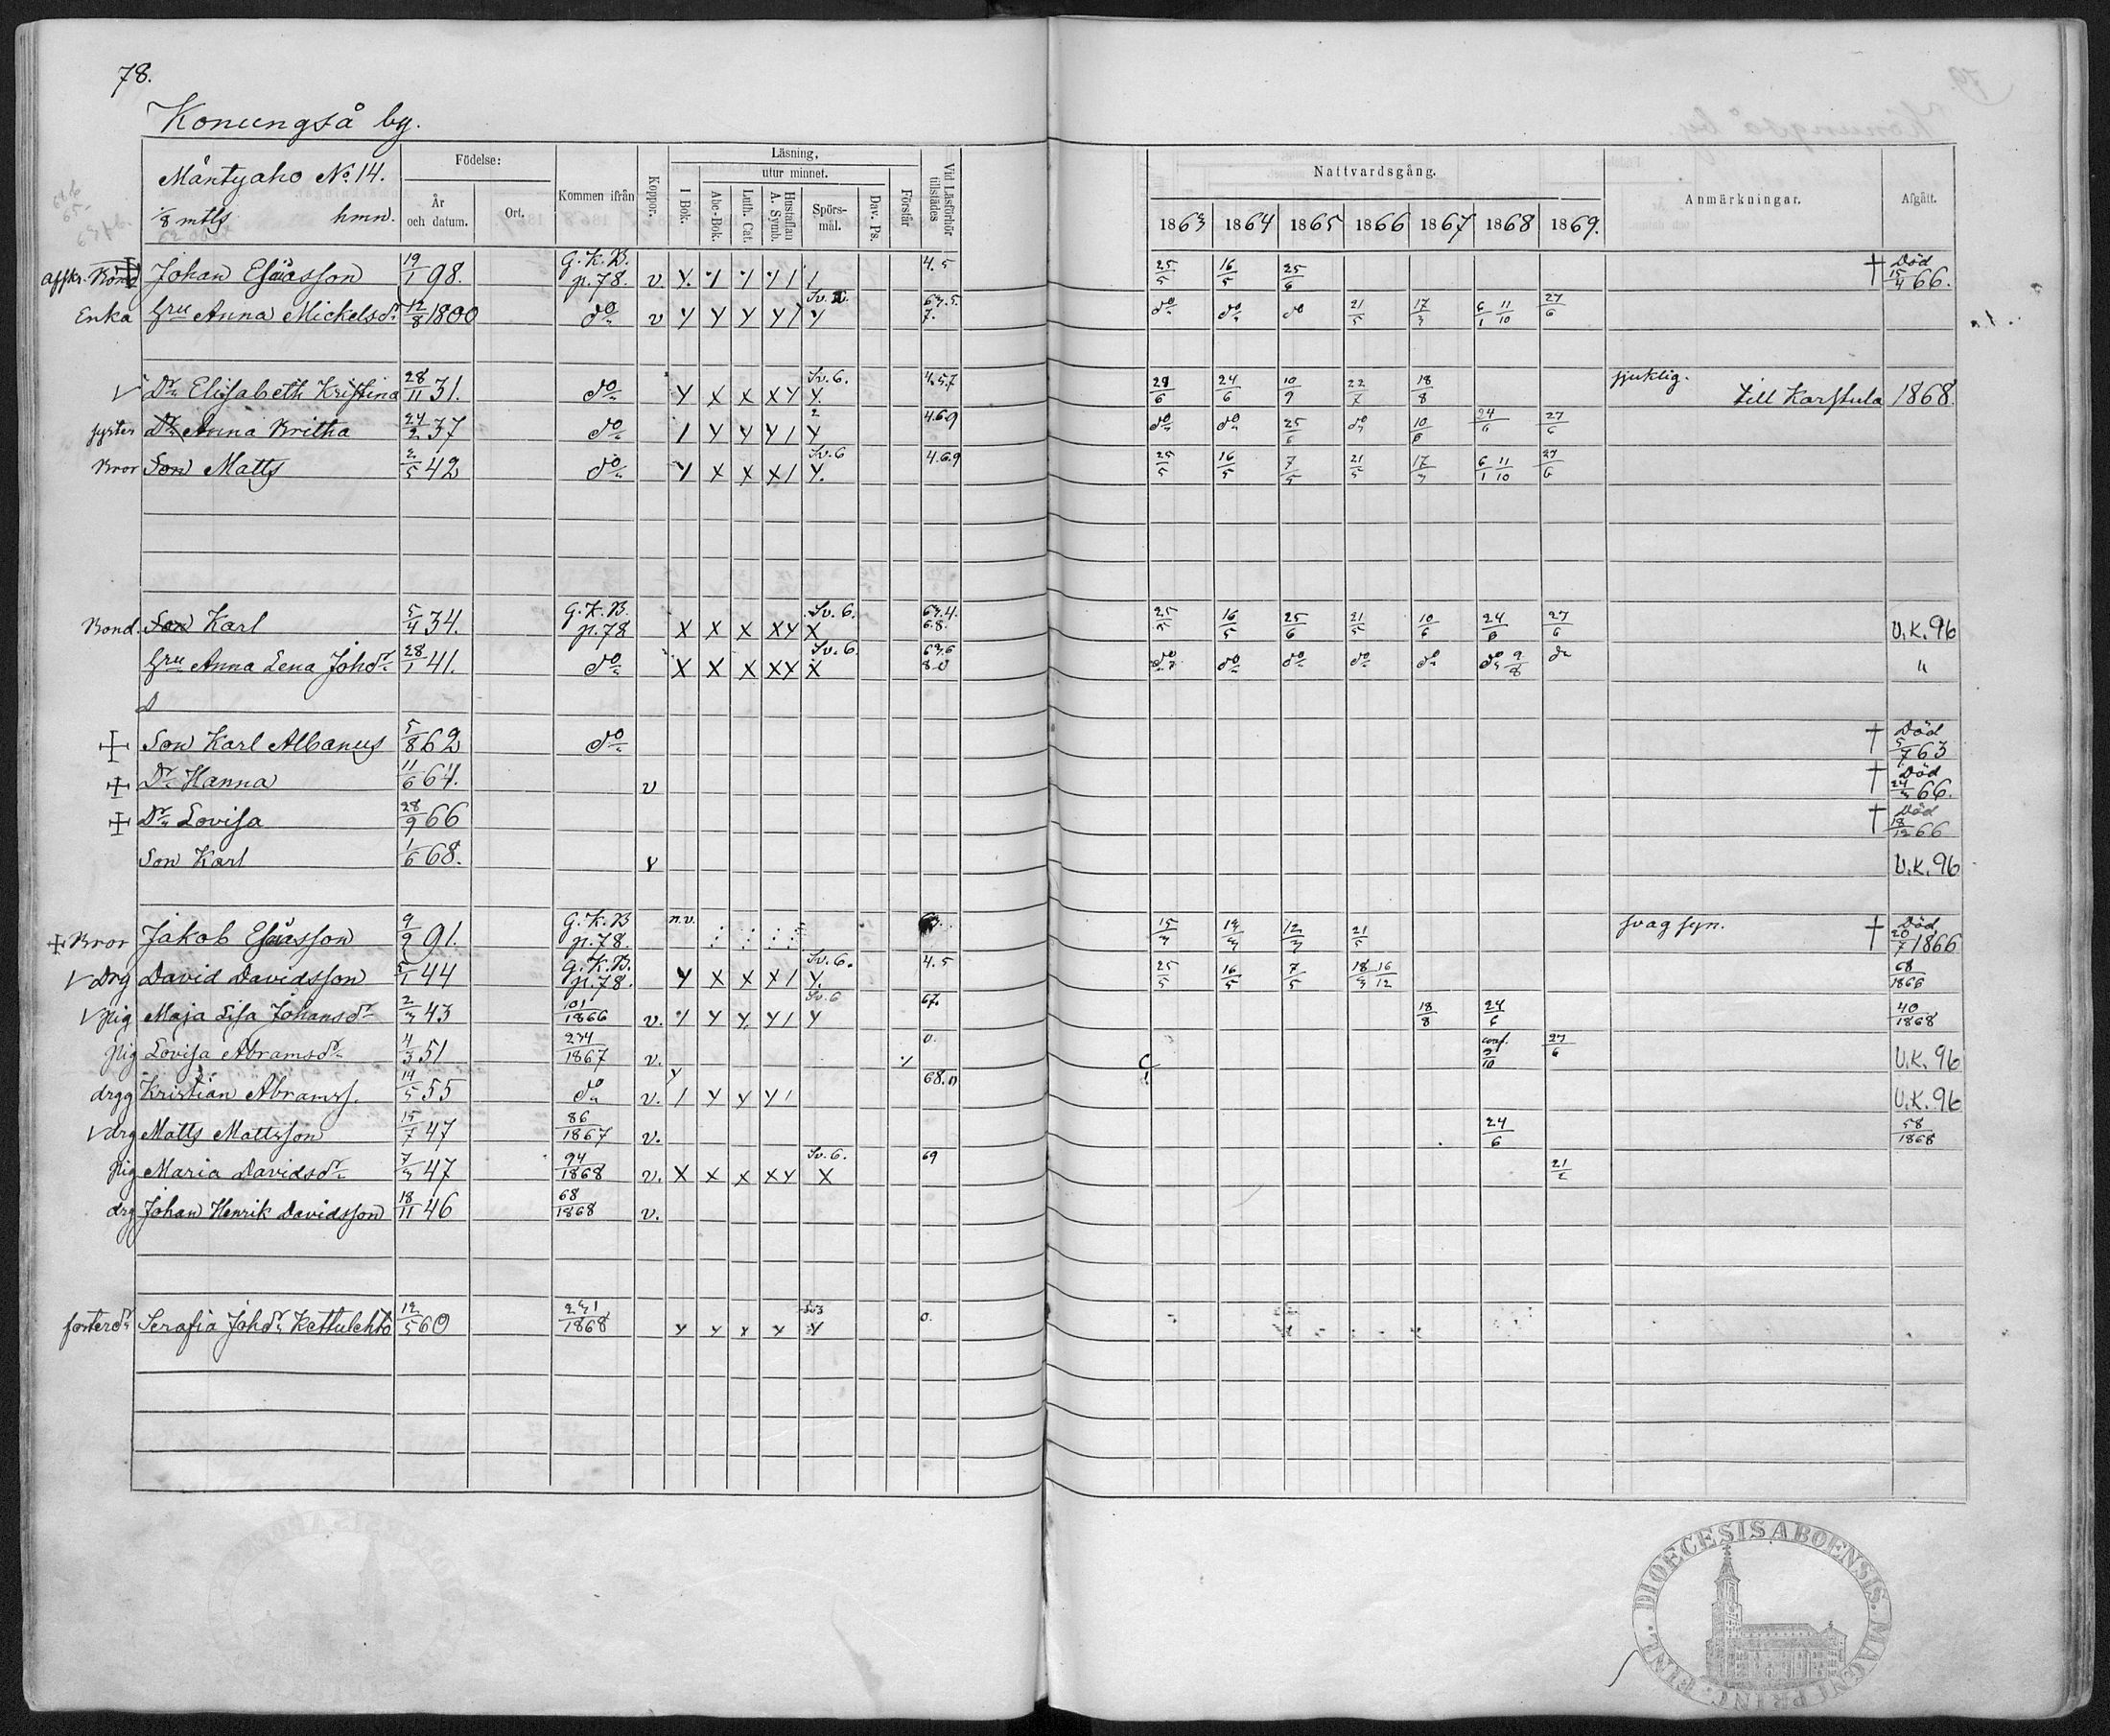 78.
Konungså by.
Mäntyaho No 14.
1/8 mtls hmn.
Födelse:
År och datum.
Ort.
Kommen ifrån
Koppor.
Läsning,
utur minnet.
I Bok.
Abc-Bok.
Luth. Cat.
Hustaflan A. Symb.
Spörs-mål.
Dav. Ps.
Förstår
Vid Läsförhör tillstädes
Nattvardsgång.
1863 1864 1865 1866 1867 1868 1869.
Anmärkningar.
Afgått.
Johan Esaiasson 19/1 98. G.K.B. p.78. v 4.5 25/5 16/5 25/6 † Död 15/4 66.
Enka Hru Anna Mickelsdr 12/8 1800 do v Y Y Y Y / Y 63.5.7. do do do 21/5 17/3 6/1 11/10 27/6
Dr Elisabeth Kristina 28/11 31. do Y X X X Y Sv.6. Y. 4.5.7 24/6 10/9 22/7 18/8 sjuklig. till Karstula 1868.
syster Dr Anna Britha 24/2 37 do / Y Y Y / 2 Y 4.6.9 do do 25/6 do 10/6 24/6 27/6
Bror Son Matts 2/5 42 do Y X X X / Sv.6 Y. 4.6.9 25/5 16/5 7/5 21/5 17/3 6/1 11/10 27/6
Bond. Son Karl 5/4 34. G.K.B. p.78 X X X X Y Sv.6. X 63.4.6.8. 25/5 16/5 25/6 21/5 10/6 24/6 27/6 U.K.96
Hru Anna Lena Johdr 28/1 41. do X X X X Y Sv.6. X do do do do do do 9/8 do "
Son Karl Albanus 5/8 62 do † Död 5/7 63
Dr Hanna 11/6 64. v † Död 24/3 66.
Dr Lovisa 28/9 66 † Död 18/12 66
Son Karl 1/6 68. v U.K.96
Bror Jakob Esaiasson 9/9 91. G.K.B p.78. n.v. 15/3 12/3 21/5 svag syn. † Död 1866
Drg David Davidsson 5/1 44 G.K.B. p.78. Y X X X / Sv.6. Y. 4.5 25/5 16/5 7/5 18/3 16/12 68/1866
pig Maja Lisa Johansdr 2/3 43 101/1866 v. Y Y Y / Sv.6 Y 67. 18/8 24/6 40/1868
pig Lovisa Abramsdr 4/3 51 234/1867 v. 0. conf. 27/6 U.K.96
drgg Kristian Abramss. 14/5 55 do v. / Y Y Y / 68. U.K.96
drg Matts Mattsson 15/7 47 86/1867 v. 24/6 58/1868
pig Maria Davidsdr 7/3 47 94/1868 v. X X X X Y Sv.6. X 69
drg Johan Henrik Davidsson 18/11 46 68/1868 v.
fosterdr Serafia Johdr Kettulehto 12/5 60 231/1868 Y Y Y Y Y 0.
DIOECESIS ABOENSIS. MAGNI PRINC. FINL.